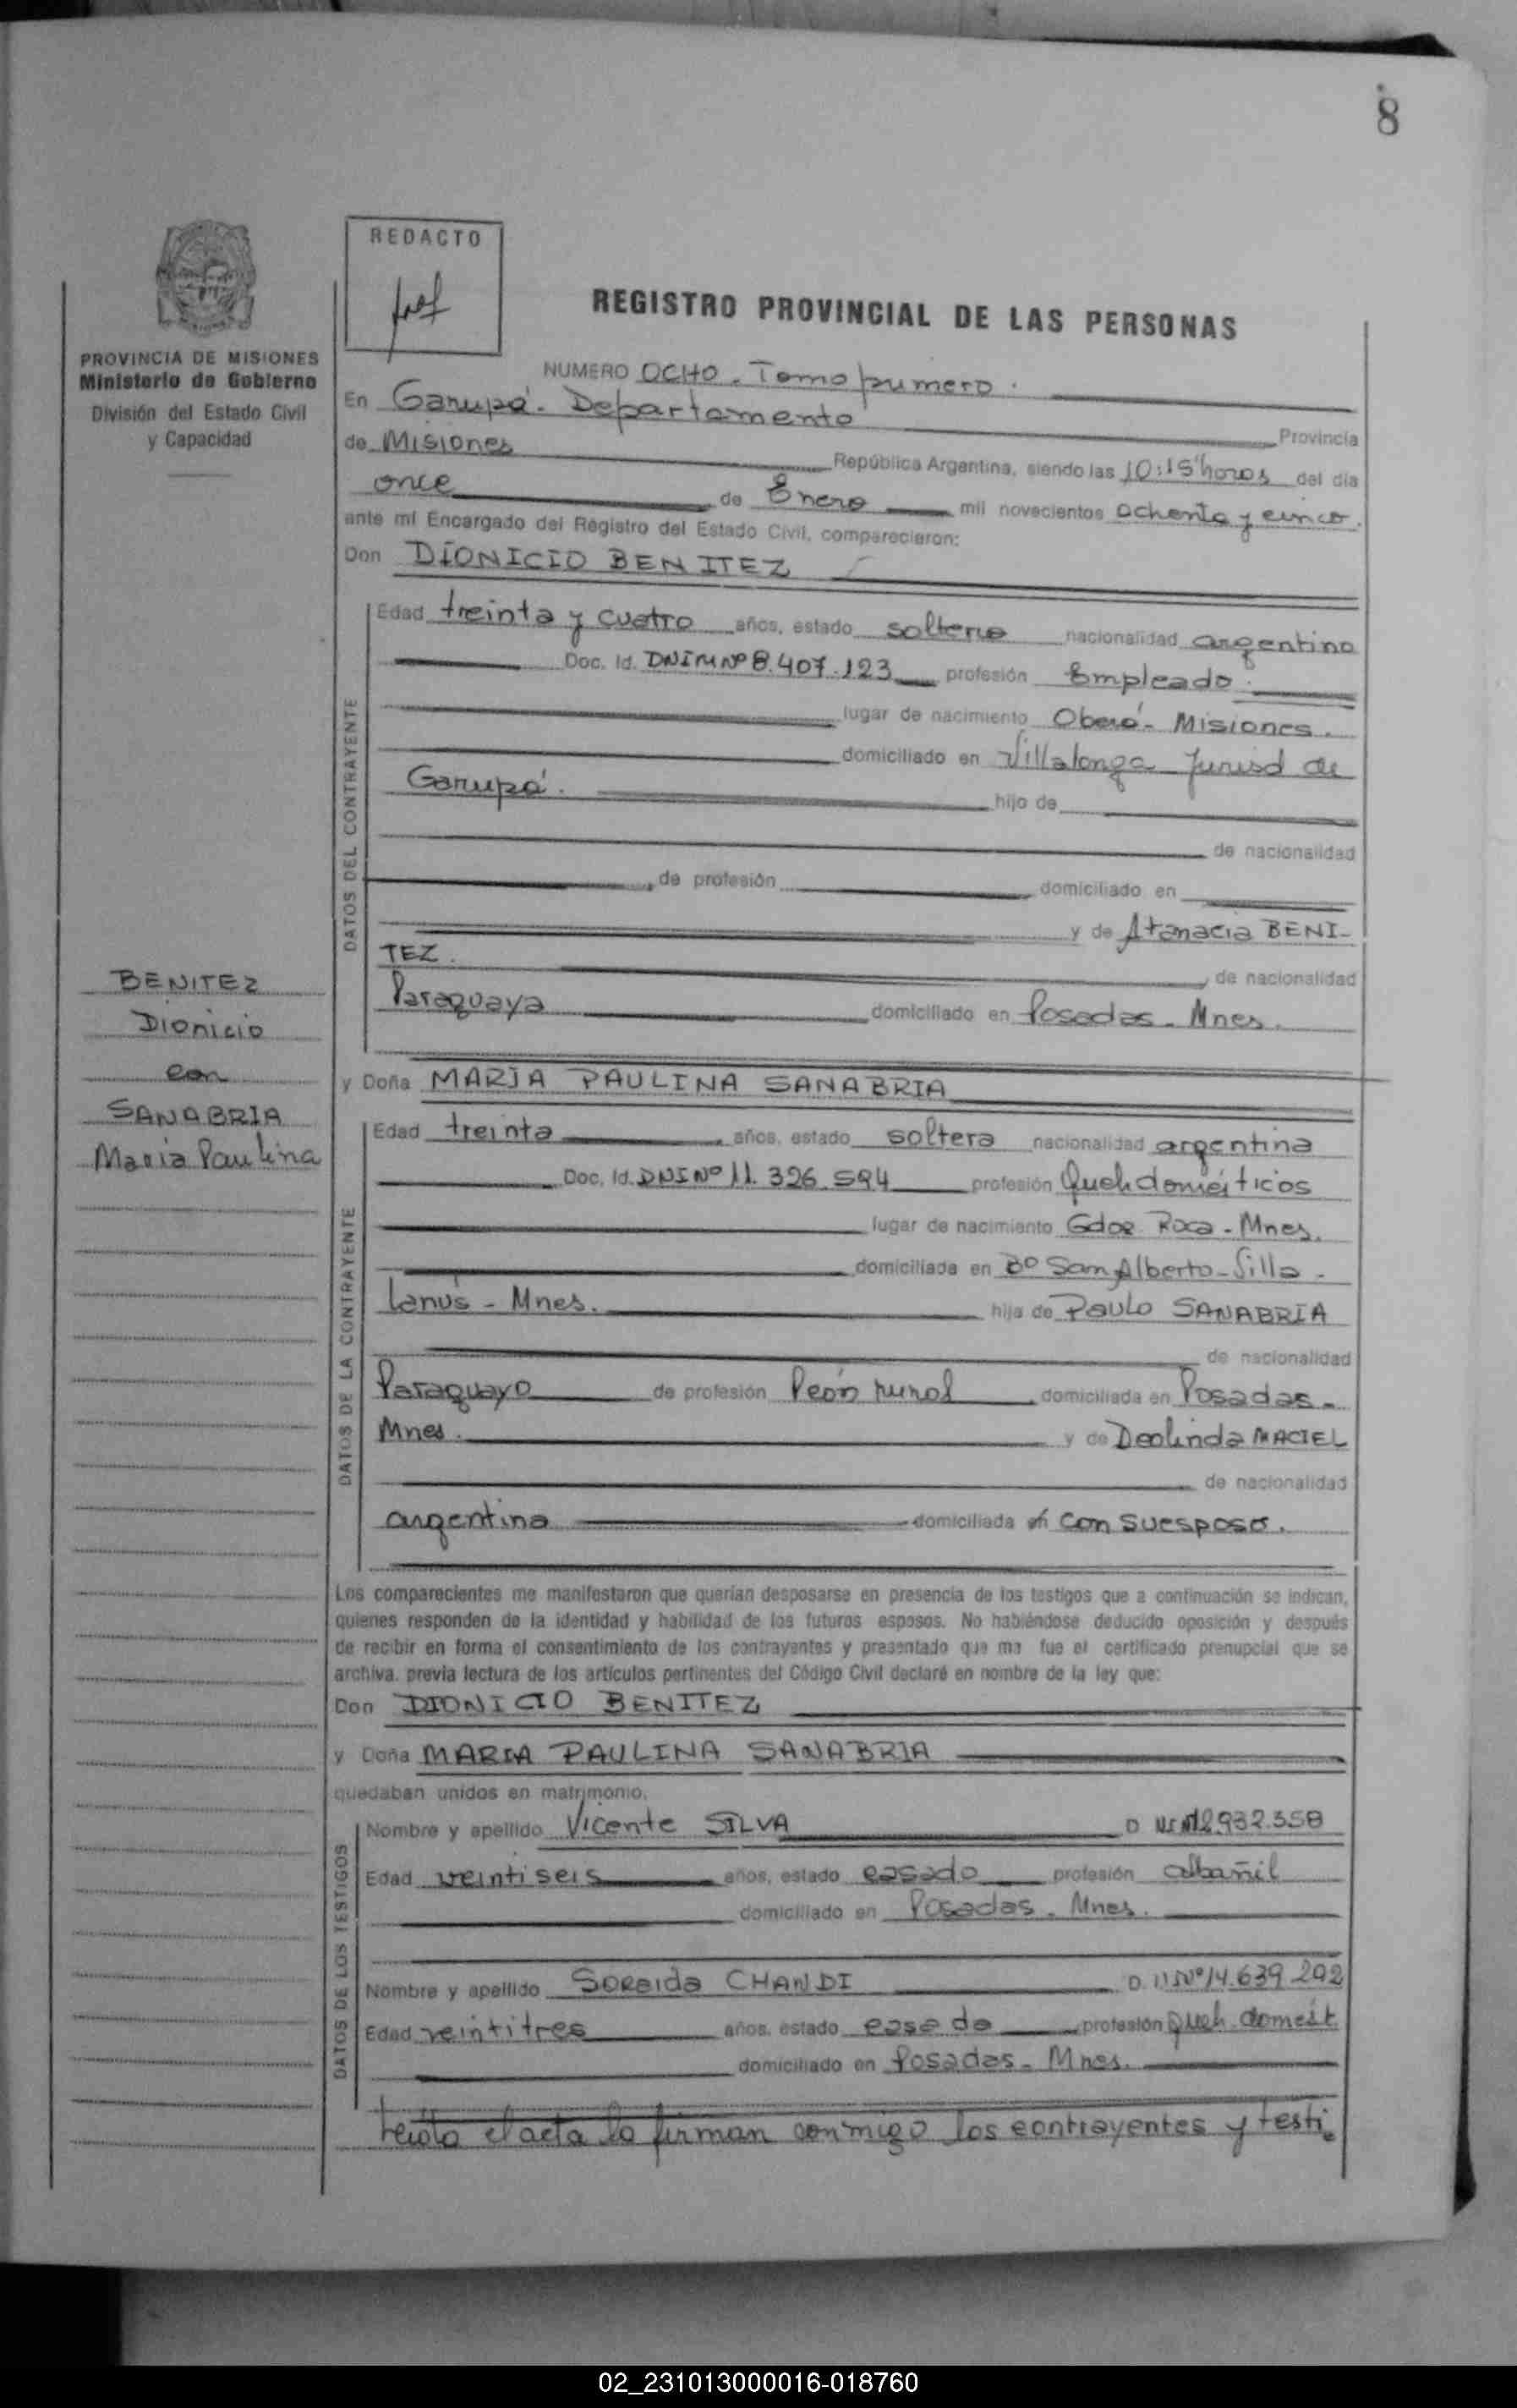 8
REDACTO
PROVINCIA DE MISIONES
Ministerio de Gobierno
División del Estado Civil
y Capacidad
REGISTRO PROVINCIAL DE LAS PERSONAS
NUMERO OCHO. Tomo primero.
En Garupá. Departamento Provincia
de Misiones República Argentina, siendo las 10:15 horas del día
once de Enero mil novecientos ochenta y cinco.
ante mí Encargado del Registro del Estado Civil, comparecieron:
Don DIONICIO BENITEZ
DATOS DEL CONTRAYENTE
Edad treinta y cuatro años, estado soltero nacionalidad argentino
Doc. Id. DNIM Nº 8.407.123 profesión Empleado.
lugar de nacimiento Oberá - Misiones.
domiciliado en Villalonga Jurisd de
Garupá. hijo de
de nacionalidad
de profesión domiciliado en
y de Atanacia BENI-
TEZ. de nacionalidad
Paraguaya domiciliado en Posadas - Mnes.
BENITEZ
Dionicio
con
SANABRIA
Maria Paulina
y Doña MARIA PAULINA SANABRIA
DATOS DE LA CONTRAYENTE
Edad treinta años, estado soltera nacionalidad argentina
Doc. Id. DNI Nº 11.326.594 profesión Queh domésticos
lugar de nacimiento Gdor Roca - Mnes.
domiciliada en Bº San Alberto - Villa -
Lanús - Mnes. hija de Paulo SANABRIA
de nacionalidad
Paraguayo de profesión Peón rural domiciliada en Posadas -
Mnes. y de Deolinda MACIEL
de nacionalidad
argentina domiciliada con su esposo.
Los comparecientes me manifestaron que querían desposarse en presencia de los testigos que a continuación se indican,
quienes responden de la identidad y habilidad de los futuros esposos. No habiéndose deducido oposición y después
de recibir en forma el consentimiento de los contrayentes y presentado que me fue el certificado prenupcial que se
archiva, previa lectura de los artículos pertinentes del Código Civil declaré en nombre de la ley que:
Don DIONICIO BENITEZ
y Doña MARIA PAULINA SANABRIA
quedaban unidos en matrimonio.
DATOS DE LOS TESTIGOS
Nombre y apellido Vicente SILVA D 12.932.358
Edad veintiseis años, estado casado profesión albañil
domiciliado en Posadas. Mnes.
Nombre y apellido Soraida CHANDI D. Nº 14.639.202
Edad veintitres años, estado casada profesión Queh. domést.
domiciliado en Posadas - Mnes.
el acta la firman conmigo los contrayentes y testi-
02_231013000016-018760